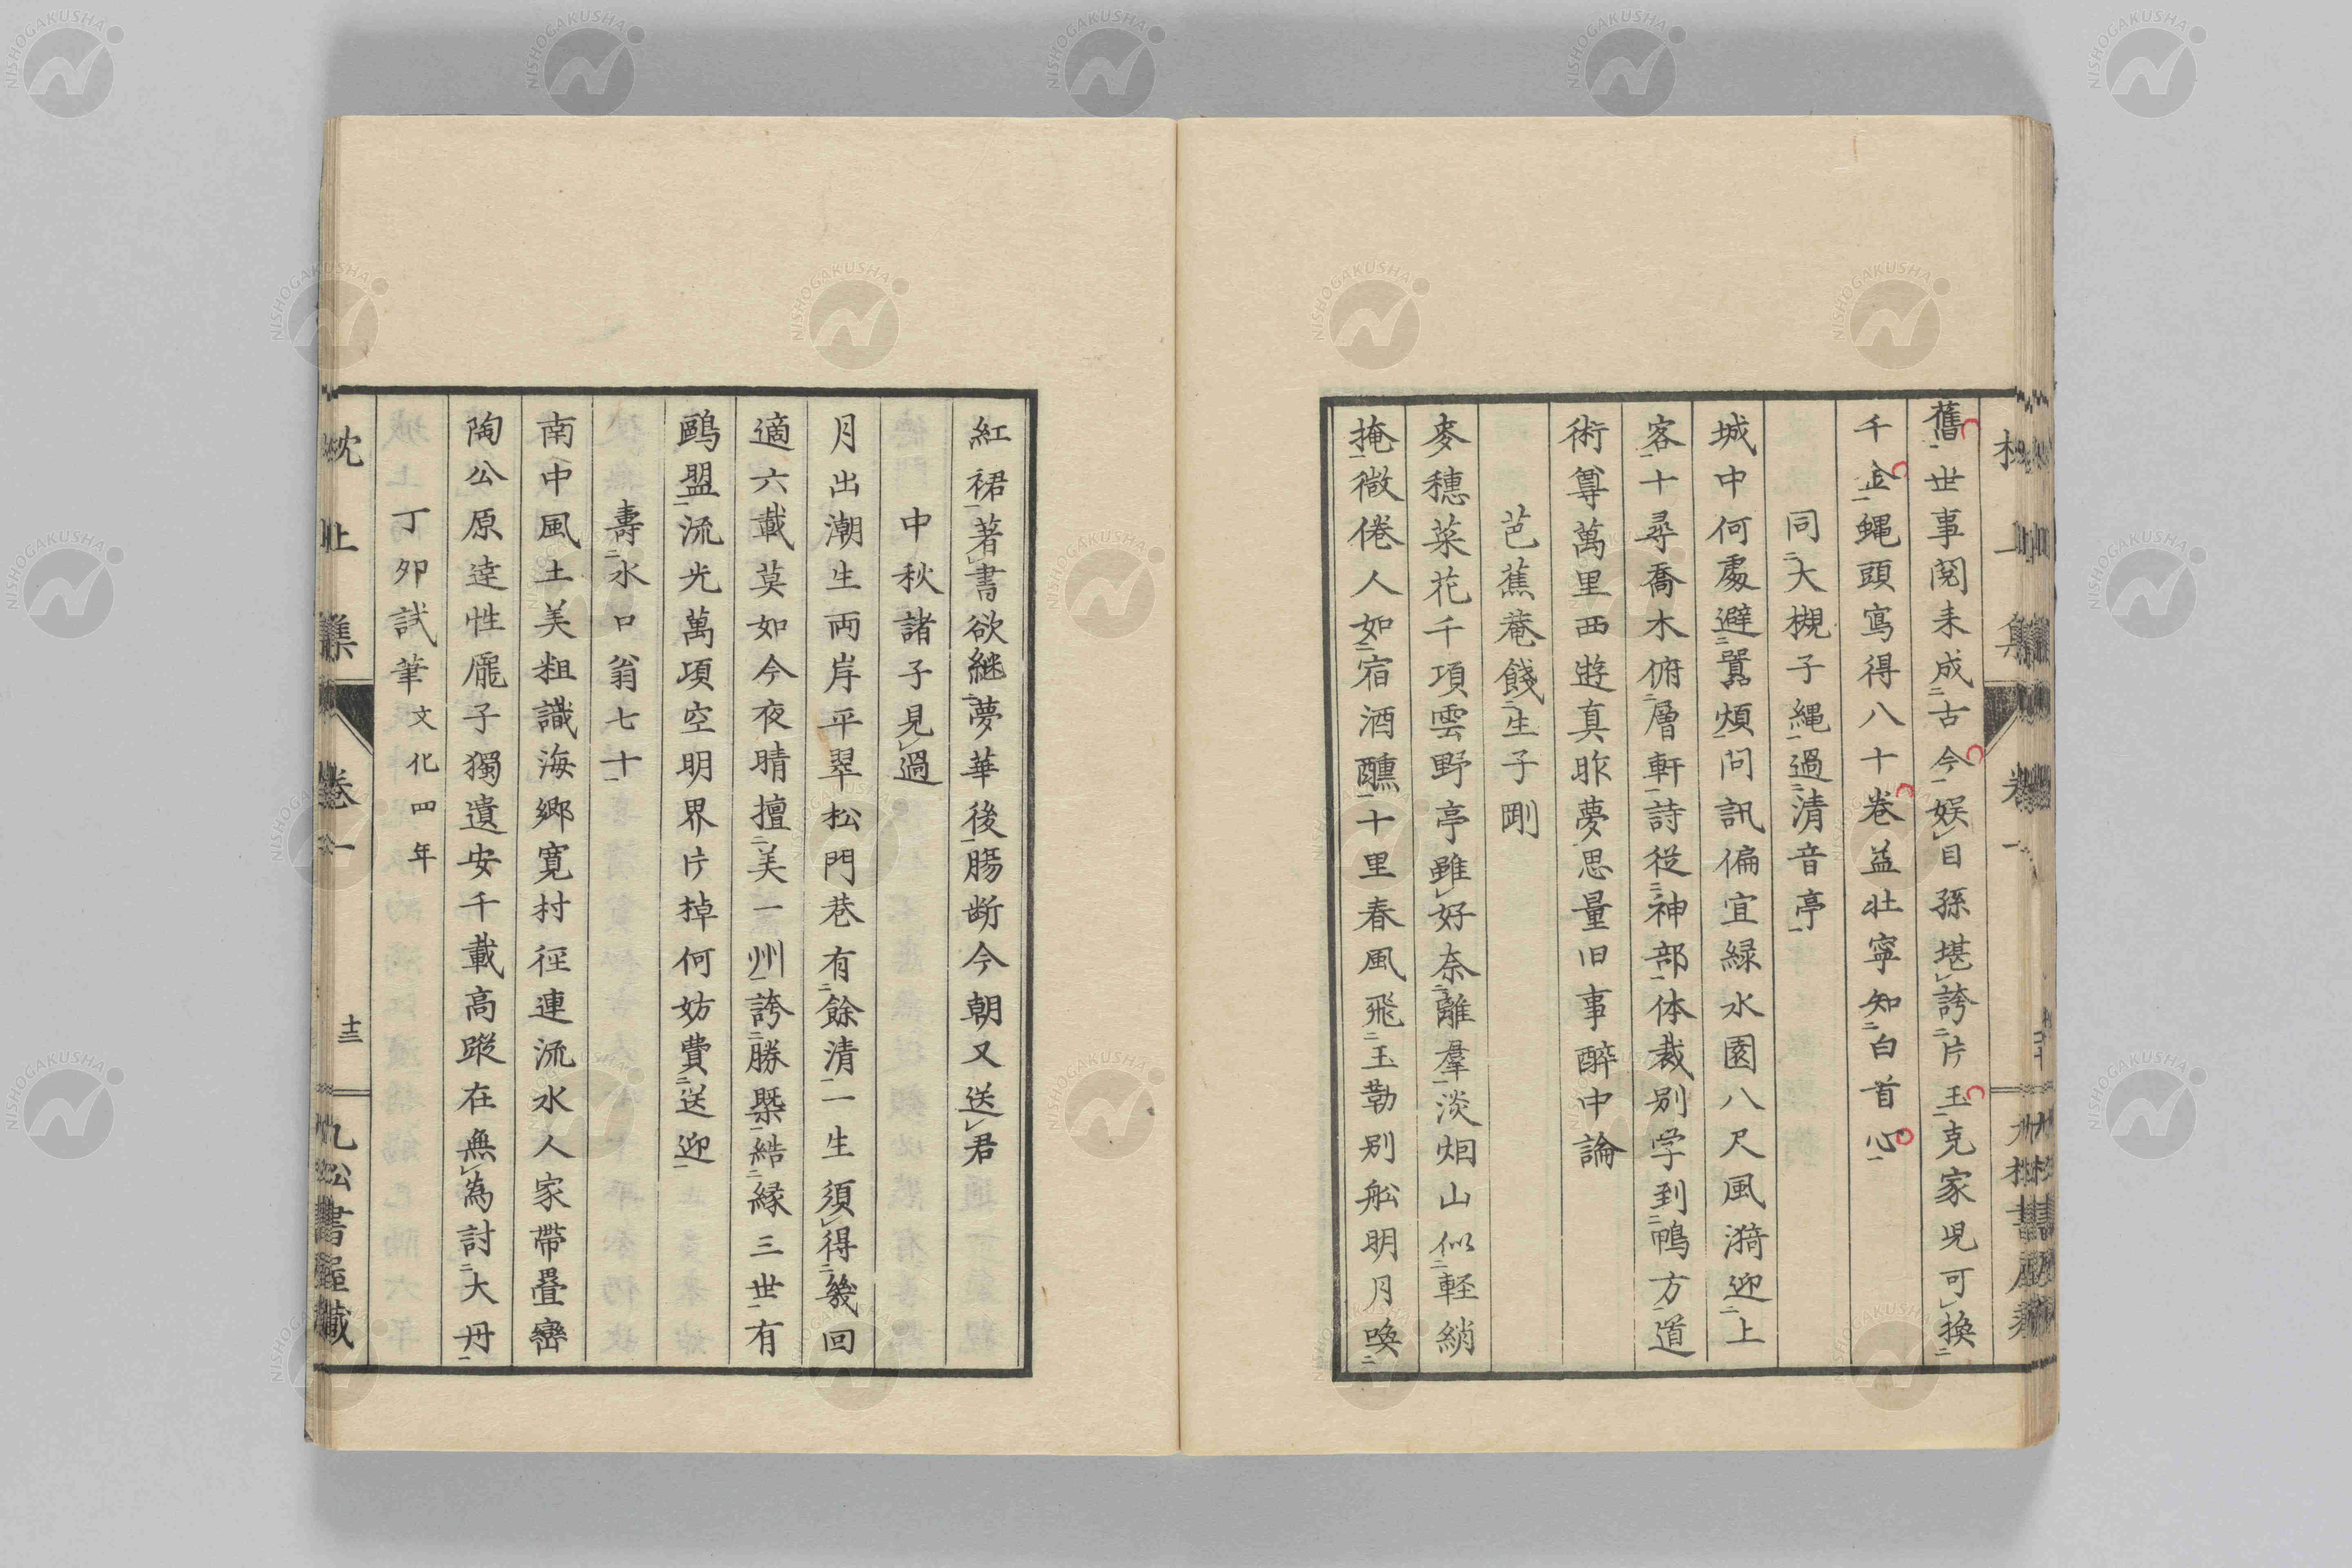 舊世事閲来成古今娯目孫堪誇片玉克家児可換
千金蠅頭寫得八十巻益壮寧知白首心
同大槻子縄過清音亭
城中何處避囂煩問訊偏宜緑水園八尺風漪迎上
客十尋喬木俯層軒詩従神部体裁別学到鴨方道
術尊萬里西遊真昨夢思量旧事酔中論
芭蕉菴餞生子剛
麥穗菜花千項雲野亭雖好奈離羣淡烟山似軽綃
掩微倦人如宿酒醺十里春風飛玉勒別舩明月喚
紅裙著書欲継夢華後膓断今朝又送君
中秋諸子見過
月出潮生両岸平翠松門巷有餘清一生須得幾回
適六載莫如今夜晴擅美一州誇勝槩結縁三世有
鷗盟流光萬項空明界片棹何妨費送迎
壽水口翁七十
南中風土美粗識海郷寛村径連流水人家帶疊巒
陶公原達性龐子獨遺安千載高蹤在無為討大丹
丁卯試筆 文化四年
枕山集 巻一 十三 九松書屋藏
NISHOGAKUSHA